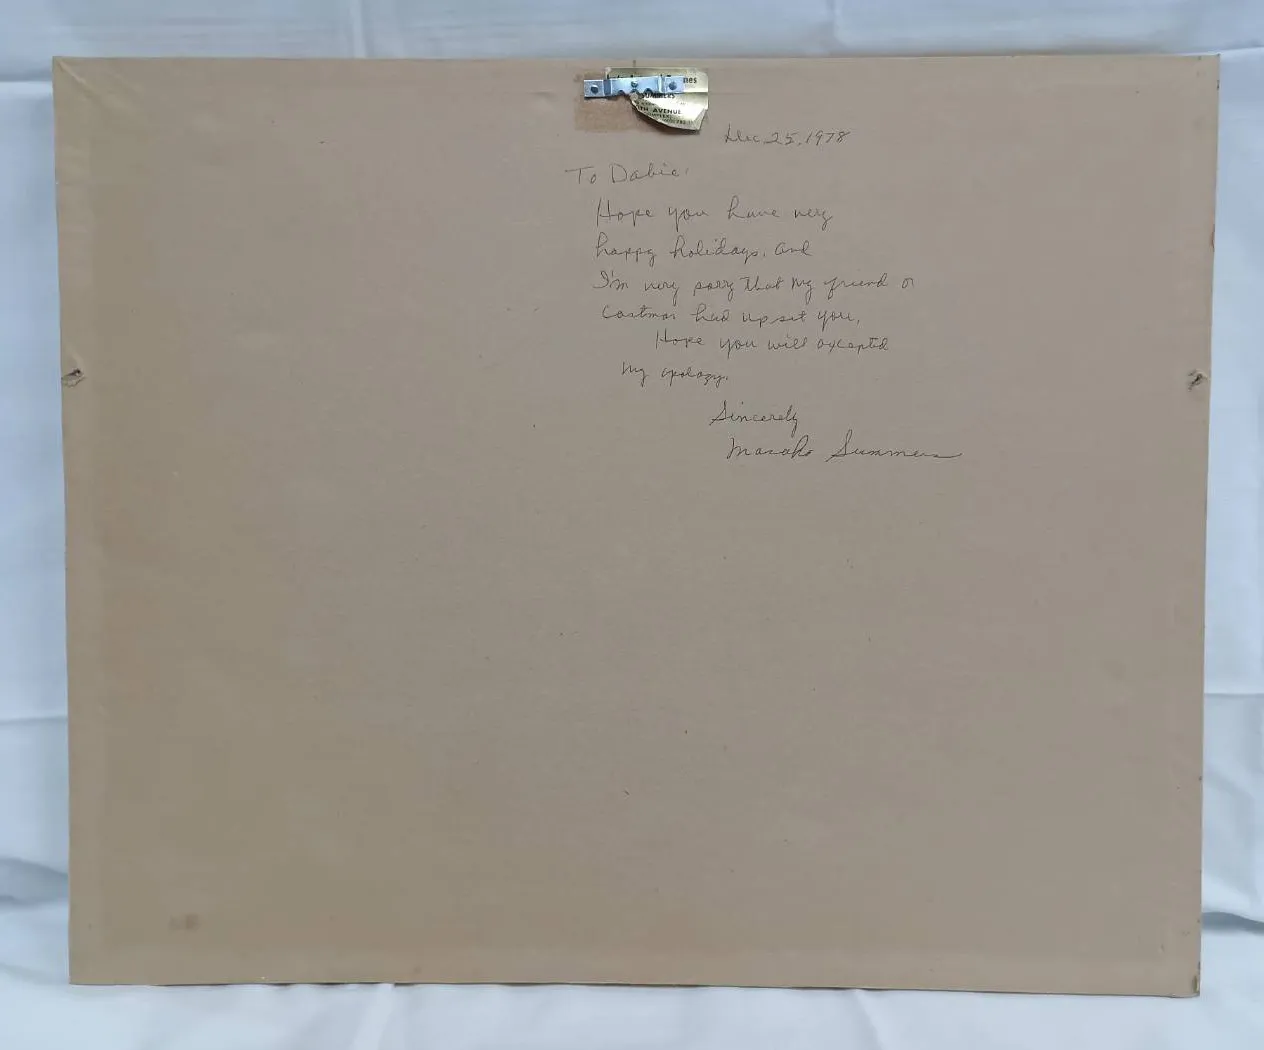 nes
SUMMERS
TH AVENUE
Dec 25, 1978
To Dabie,
Hope you have very
happy holidays, and
I'm very sorry that my friend or
Costmar had upset you,
Hope you will accepted
my apology.
Sincerely
Masako Summers